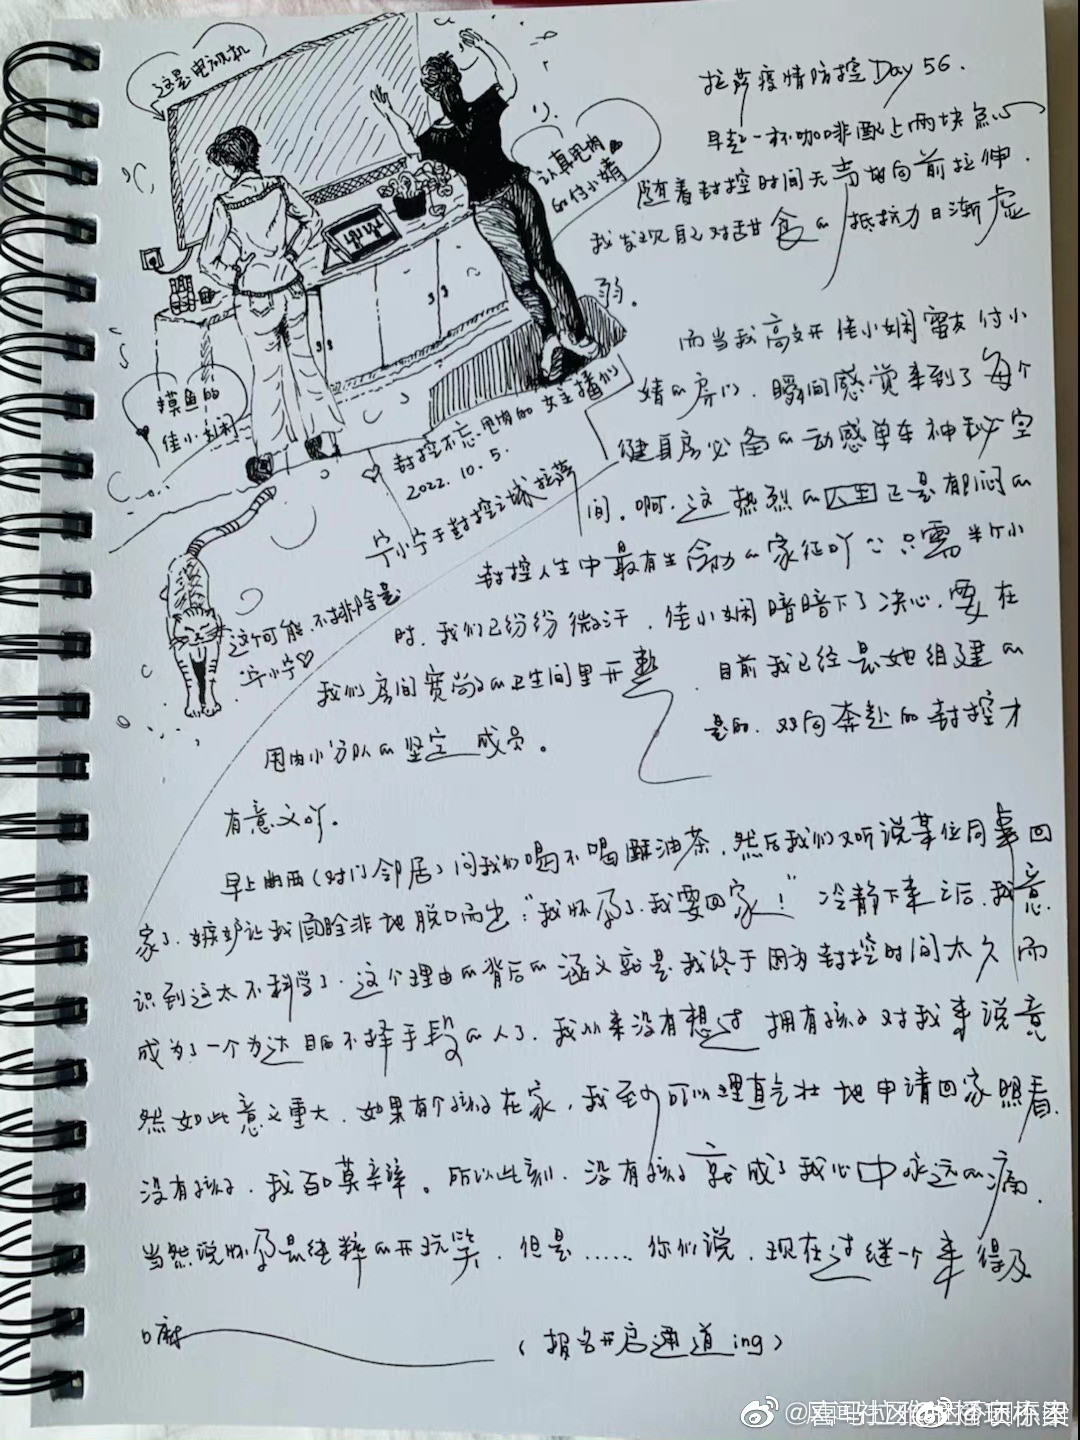 这是电视机
认真甩肉
的付小婧
摸鱼的
佳小娴
封控不忘甩肉的女主播们
2022.10.5.
宁小宁于封控之城拉萨
这个可能,不排除是
宁小宁
拉萨疫情防控Day 56.
早起一杯咖啡配上两块点心
随着封控时间无声地向前拉伸.
我发现自己对甜食的抵抗力日渐虚
弱。
而当我离开佳小娴室友付小
婧的房门,瞬间感觉来到了每个
健身房必备的动感单车神秘空
间。啊,这热烈的 已是郁闷的
封控人生中最有生命力的象征吖 只需半个小
时,我们已纷纷微汗,佳小娴暗暗下了决心,要在
我们房间宽尚的卫生间里开 目前我已经是她组建的
甩肉小分队的坚定成员。 是的,双向奔赴的封控才
有意义吖。
早上幽西(对门邻居)问我们喝不喝酥油茶,然后我们又听说某位同事回
家了,嫉妒让我面目全非地脱口而出:"我怀孕了,我要回家!"冷静下来之后,我意
识到这太不科学了.这个理由的背后的涵义就是我终于因为封控时间太久而
成为了一个为达目的不择手段的人了.我从来没有想过拥有孩子对我来说意
然如此意义重大,如果有个孩子在家,我至少可以理直气壮地申请回家照看.
没有孩子,我百口莫辩。所以此刻,没有孩子就成了我心中永远的痛.
当然说怀孕是纯粹的开玩笑,但是……你们说,现在过继一个来得及
嘛 (报名开启通道ing)